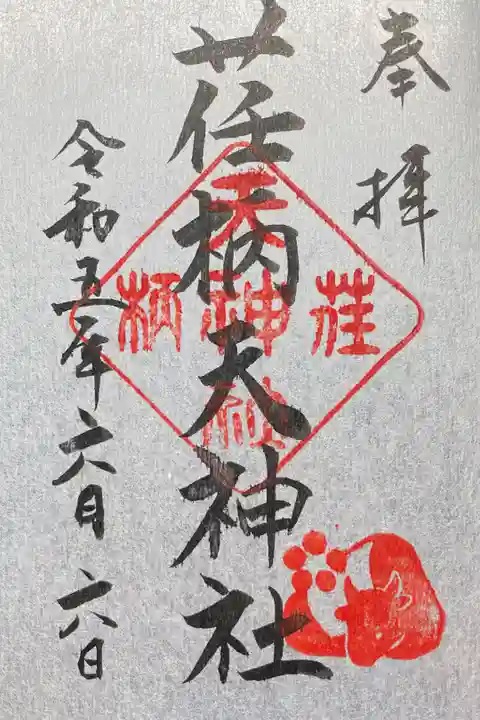 奉拝
荏柄天神社
令和五年六月六日
荏柄天神社